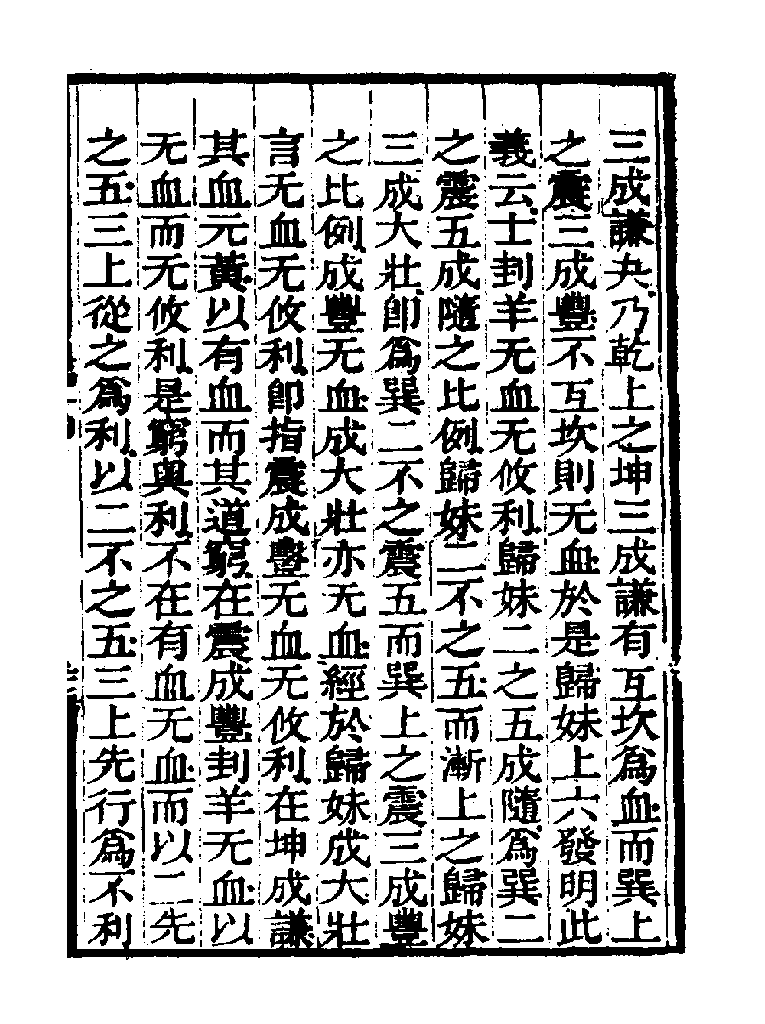 三成謙夬乃乾上之坤三成謙有互坎為血而巽上
之震三成豐不互坎則无血於是歸妹上六發明此
義云士刲羊无血无攸利歸妹二之五成隨為巽二
之震五成隨之比例歸妹二不之五而漸上之歸妹
三成大壯即為巽二不之震五而巽上之震三成豐
之比例成豐无血成大壯亦无血經於歸妹成大壯
言无血无攸利即指震成豐无血无攸利在坤成謙
其血元黃以有血而其道窮在震成豐刲羊无血以
无血而无攸利是窮與利不在有血无血而以二先
之五三上從之為利以二不之五三上先行為不利